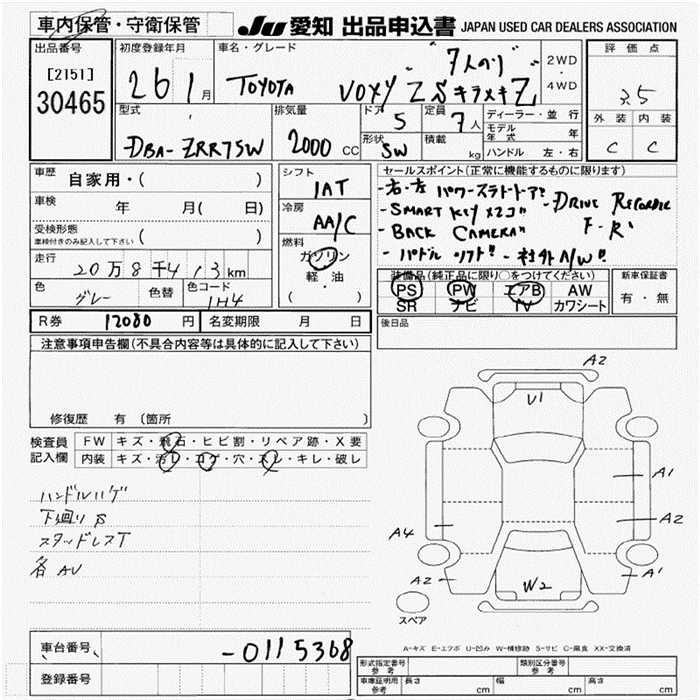 車内保管・守衛保管 JU 愛知 出品申込書 JAPAN USED CAR DEALERS ASSOCIATION
出品番号 初度登録年月 車名・グレード 評価点
[2151]
30465
26 1月 TOYOTA VOXY ZS キラメキ Z "7人のり" 2WD・4WD 3.5
型式 排気量 ドア 5 定員 7人 ディーラー・並行 外装 内装
DBA-ZRR75W 2000 CC 形状 SW 積載 kg モデル年式 年 C C
ハンドル 左・右
車歴 自家用・( ) シフト セールスポイント(正常に機能するものに限ります)
1AT
車検 年 月( 日) 冷房
AA/C
- 右・左 パワースライドドア! - DRIVE RECORDER F-R"
- SMART KEY X2コ"
- BACK CAMERA"
- パドルシフト!! - 社外A/W"
受検形態 ( )
車検付きのみ記入して下さい
燃料
ガソリン
軽・油
( )
走行 20万8千413km
色 グレー 色替 色コード 1H4
装備品(純正品に限り○をつけてください) 新車保証書
PS PW エアB AW 有・無
SR ナビ TV カワシート
R券 12080円 名変期限 月 日 後日品
注意事項申告欄(不具合内容等は具体的に記入して下さい)
修復歴 有 (箇所 )
検査員 記入欄
FW キズ・飛石・ヒビ割・リペア跡・X要
内装 キズ・汚レ・コゲ・穴・スレ・キレ・破レ
ハンドルハゲ
下廻りS
スタッドレスT
各AU
A2
U1
A1
A2
A4
A2
W2
A1
スペア
A-キズ E-エクボ U-凹み W-補修跡 S-サビ C-腐食 XX-交換済
車台番号 -0115368
登録番号
形式指定番号 参考 類別区分番号 参考
車庫証明用 参考 長さ cm 幅 cm 高さ cm